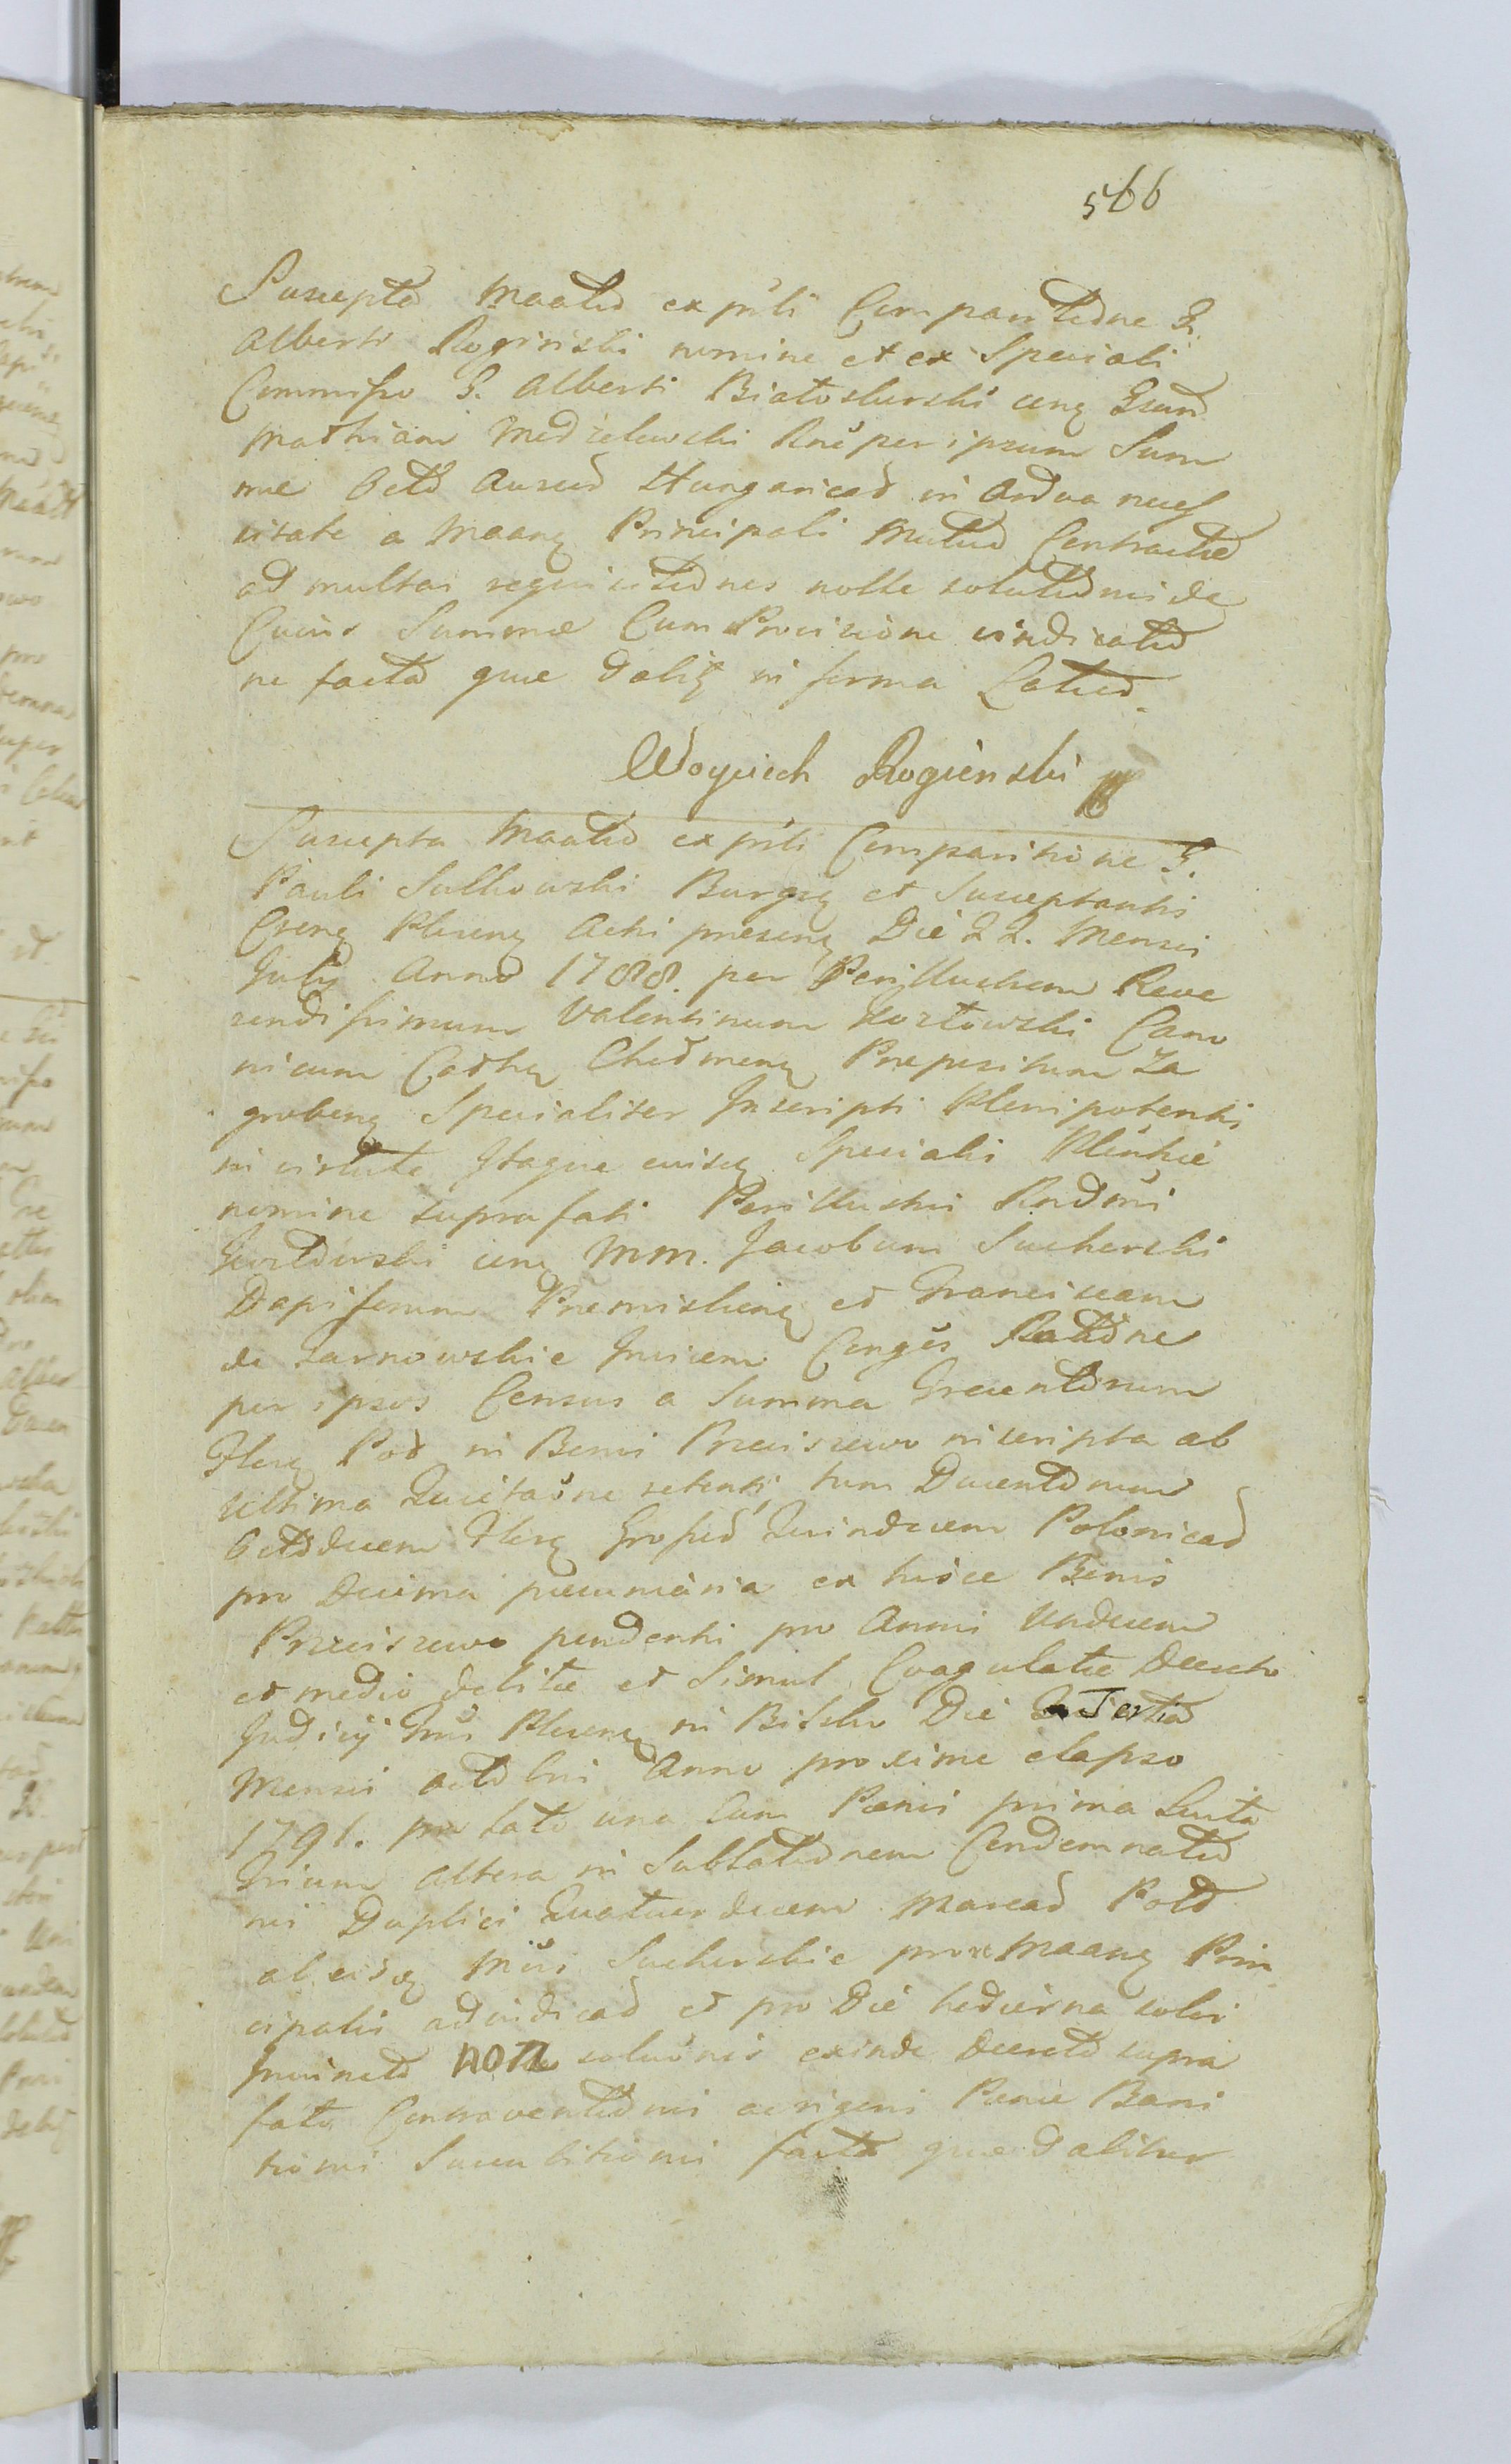 566
Suscepta Maatio ex pnti Comparitione G.
Alberti Rogiński nomine et ex Speciali
Commisso G. Alberti Białoskurski ceng Gsum
Mathiam Medzelewski Rne per ipsum Sum
me Octo Aureos Hungaricas in Ardua necess
itate a Maang Principali Mutuo Contractae
ad multas requisitiones nolle solutionis de
Cuius Summae Cum Provisione vindicatio
ne facta que dalis in forma Latius
Woyciech Rogieński
Suscepta Maatio ex pnti Comparitione G.
Pauli Sulkowski Burgg et Susceptantis
Creng Plueng Actis presens Die 22. Mensis
July Anno 1788. per Perillustrem Reve
rendissimum Valentinum Kozłowski Cano
nicum Cathg Chelmeng Prepositum Za
grobeng Specialiter Inscripti Plenipotentis
in virtute Itaque eiusg Specialis Plenhie
nomine suprafati Perillustris Rndmi
ceng MM. Jacobum Sucherski
Dapiferum Premislieng et Franciscam
de Tarnowskie Invicem Conges Ratione
per ipsos Census a Summa Trecentorum
Fleng Pol in Bonis Prziszewo inscripta ab
ultima Quietaone retenti, tum Ducentorum
Octodecem Fleng Grossos Quindecem Polonicad
pro Decima pecuniaria ex hisce Bonis
Prziszewo pendenti pro Annis Undecem
et medio debitae et Simul Coagulatae Decreto
Judicij Plueng in Bielsk Die Tertia
Mensis octobris Anno proxime elapso
1791. pro lato una Cum Paenis prima Luita
Trium altera in Sublationem Condemnatio
nis Duplici Quatuordecem Marcad Pold
ab eisg Mcis Sucherskie pro Maang Prin
cipalis adiudicad et pro Die hodierna solvi
Iniuncto non soluonis exinde Decreto supra
fato Contraventionis ac rigoris Paenae Bani
tionis Succubitionis facta que dabitur